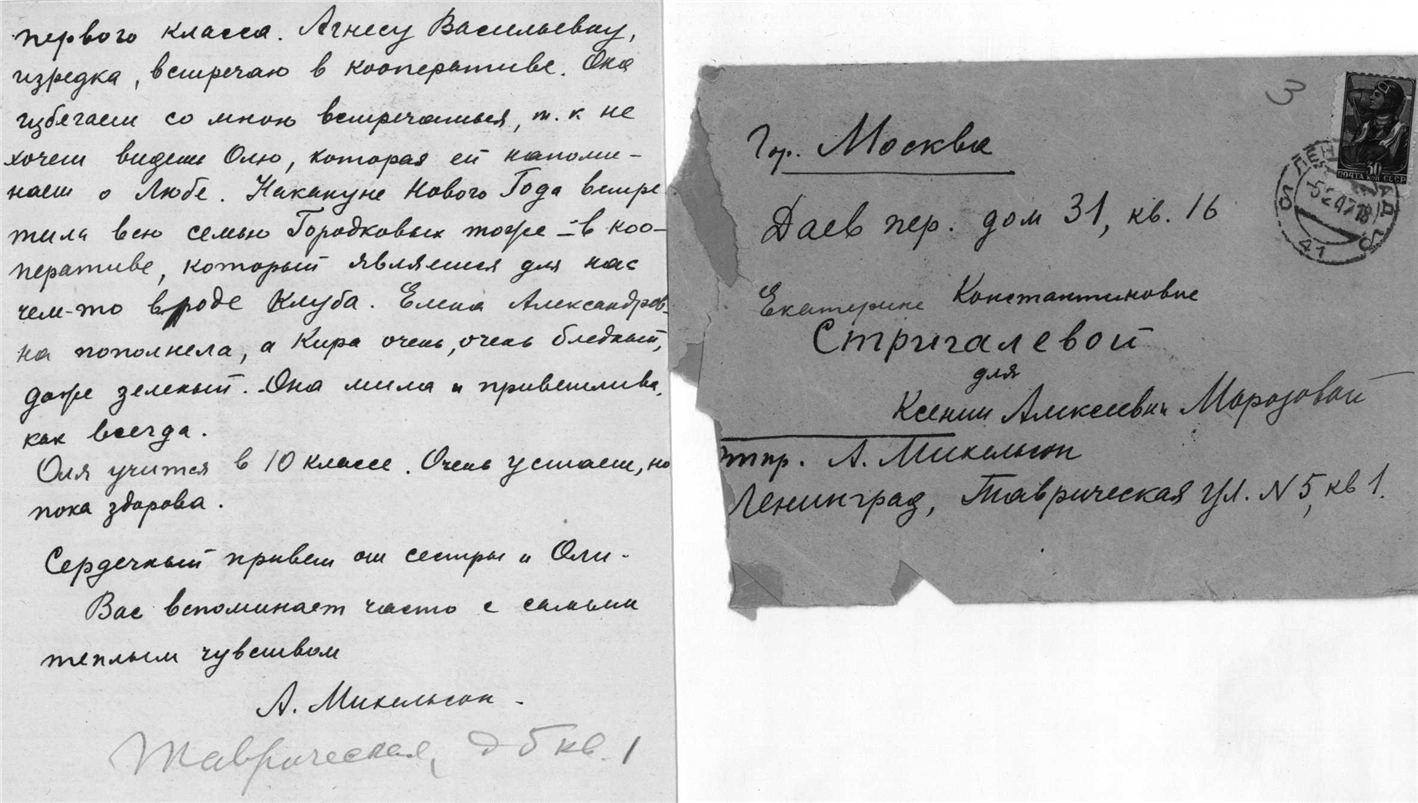 первого класса. Агнесу Васильевну,
изредка, встречаю в кооперативе. Она
избегает со мною встречаться, т. к не
хочет видеть Олю, которая ей напоми-
нает о Любе. Накануне Нового Года встре
тила всю семью Городковых тоже – в коо-
перативе, который является для нас
чем-то вроде клуба. Елена Александров-
на пополнела, а Кира очень, очень бледный,
даже зеленый. Она мила и приветлива,
как всегда.
Оля учится в 10 классе. Очень устает, но
пока здорова.
Сердечный привет от сестры и Оли.
Вас вспоминает часто с самым
теплым чувством
А. Микельсон.
Таврическая, д 5 кв. 1
3
Гор. Москва
Даев пер. дом 31, кв. 16
Екатерине Константиновне
Стригалевой
для
Ксении Алексеевны Морозовой
отпр. А. Микельсон
Ленинград, Таврическая ул. N 5, кв 1.
30
ПОЧТА СССР
ЛЕНИНГРАД
5247 18
41